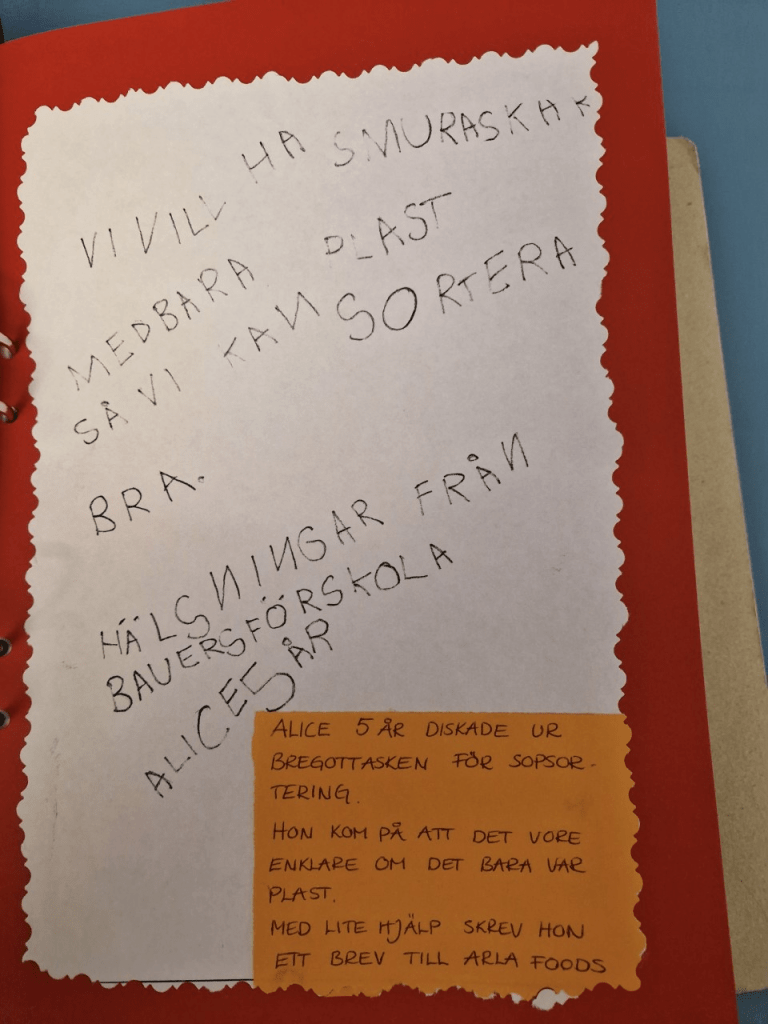 VI VILL HA SMURASKAK
MEDBARA PLAST
SÅ VI KAN SORTERA
BRA.
HÄLSNINGAR FRÅN
BAUERSFÖRSKOLA
ALICE 5 ÅR
ALICE 5 ÅR DISKADE UR
BREGOTTASKEN FÖR SOPSOR-
TERING.
HON KOM PÅ ATT DET VORE
ENKLARE OM DET BARA VAR
PLAST.
MED LITE HJÄLP SKREV HON
ETT BREV TILL ARLA FOODS